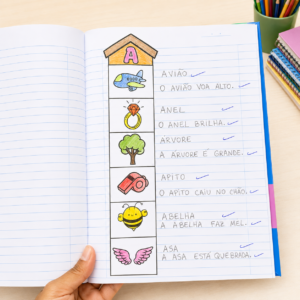 A
AVIÃO
O AVIÃO VOA ALTO.
ANEL
O ANEL BRILHA.
ÁRVORE
A ÁRVORE É GRANDE.
APITO
O APITO CAIU NO CHÃO.
ABELHA
A ABELHA FAZ MEL.
ASA
A ASA ESTÁ QUEBRADA.